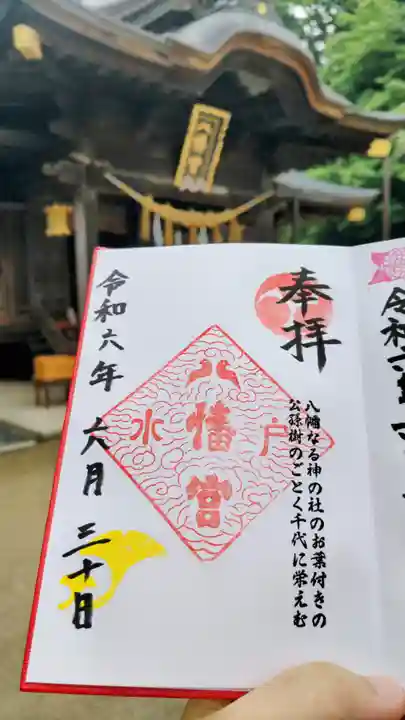 八幡宮
奉拝
八幡なる神の社のお葉付きの
公孫樹のごとく千代に栄えむ
水戸
八幡宮
令和六年 六月 三十日